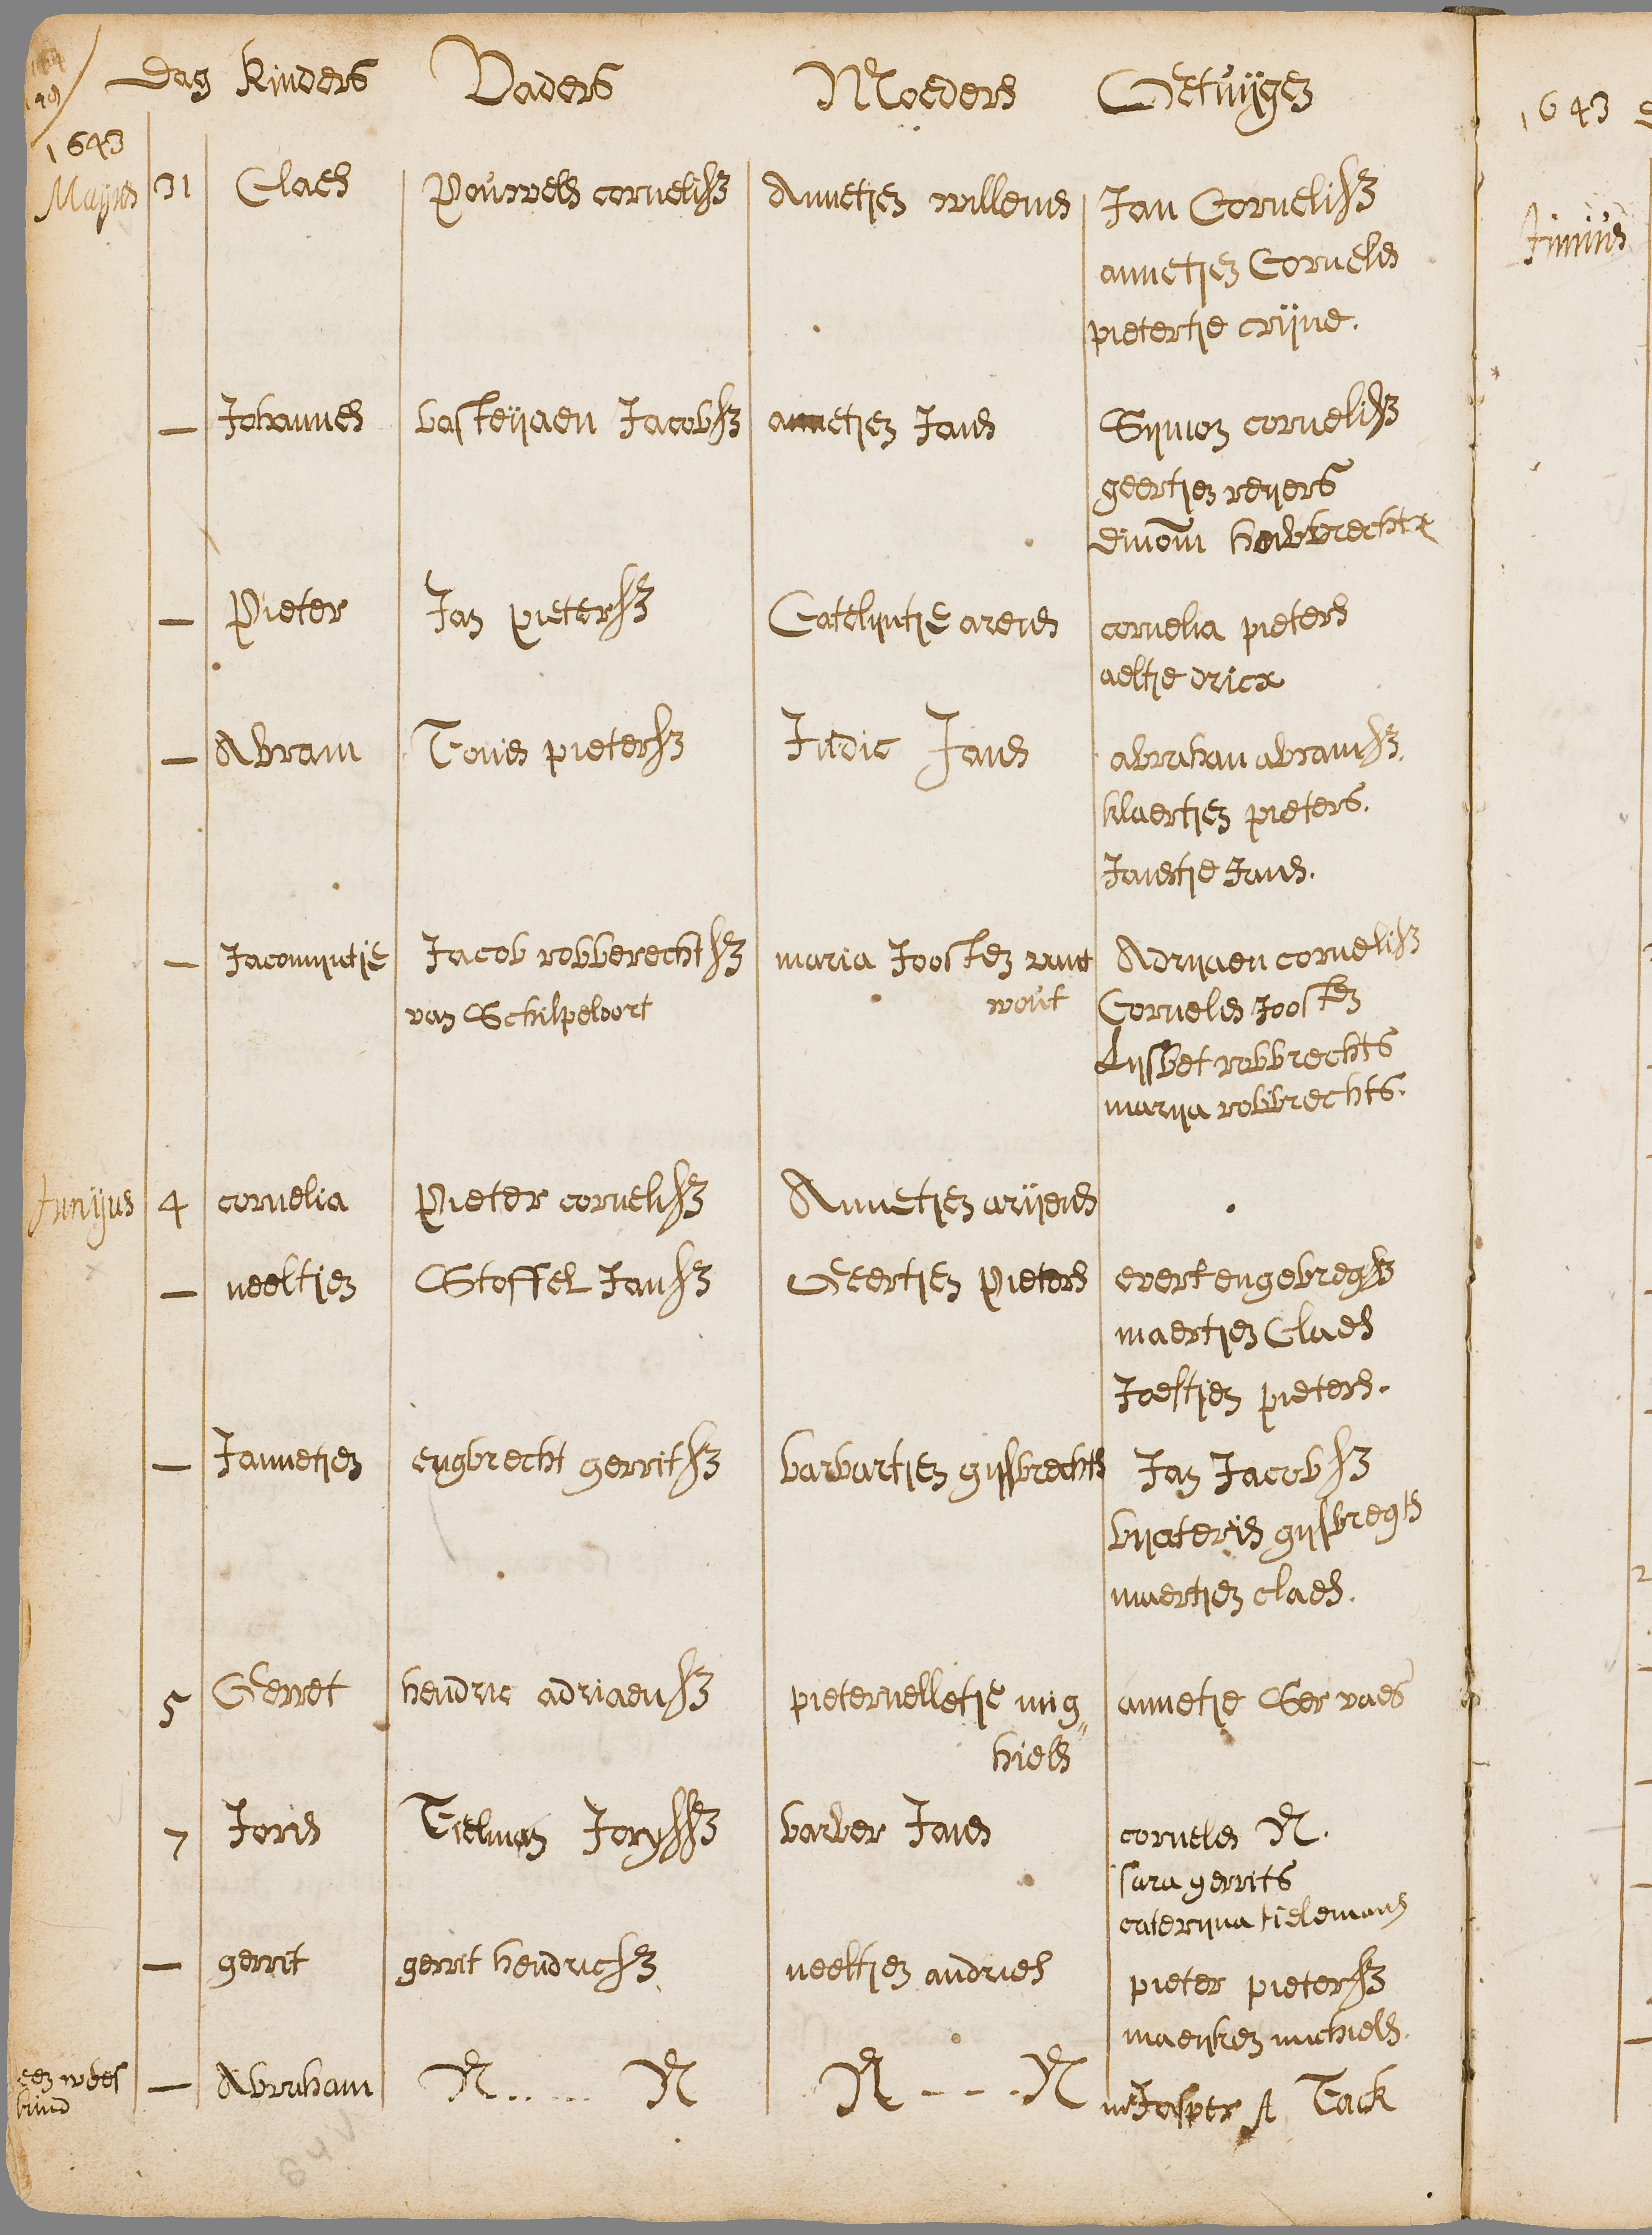 Dag Kinders Vaders Moeders Getuijgen
1643
Majus 31 Claes Pouwels cornelisz Annetjen willems Jan Cornelisz
annetjen Cornelis
pietertje crijne.
— Johannes basteijaen Jacobsz annetjen Jans Sijmon cornelisz
geertjen reijers
— Pieter Jan pietersz Catelijntje arens cornelia pieters
aeltje dricx
— Abram Tonis pietersz Judic Jans abrahan abramsz.
klaertjen pieters.
Jansstje Jans.
— Jacomijntje Jacob robberechtsz maria Joosten Adrijaen cornelisz
van Schilpeloort wout Cornelis Joosten
Lijsbet robbrechts
marija robbrechts.
Junijus 4 cornelia Pieter cornelisz Annetjen arijens
— neeltjen Stoffel Jansz Geertjen Pieters evert engebregsz
maertjen Claes
Joestjen pieters.
— Jannetjen engbrecht gerritsz barbartjen gijsbrechts Jan Jacobsz
bijateris gijsbregts
maertjen claes.
5 Gerret hendric adriaensz pieternelletje mig„ annetje Servaes
hiels
7 Joris Tielman Jorysz barber Jans cornelis N.
sara gerrits
caterijna tielemans
— gerrit gerrit hendricsz neeltjen andries pieter pietersz
maeijken michiels.
een wees — Abraham N..... N N - - - N mr Jasper A Tack
kind
1643
Junius